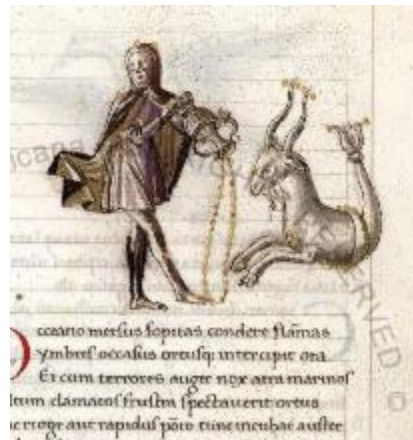 icana
RESERVED
cceano mersus sopitas condere flāmas
ymbres occasus ortusq intercipit ora
Et cum terrores auget nox atra marinos
ltum clamatos frustra spectaverit ortus
aut rapidus pōto tunc incubat auster